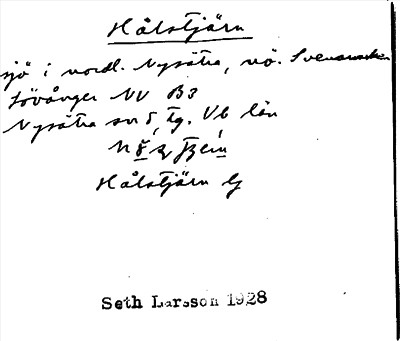 Hålstjärn
sjö i nordl. Nysätra, nö. Svensarken
Lövånger NV B3
Nysätra sn, Vb län
Hålstjärn G
Seth Larsson 1928